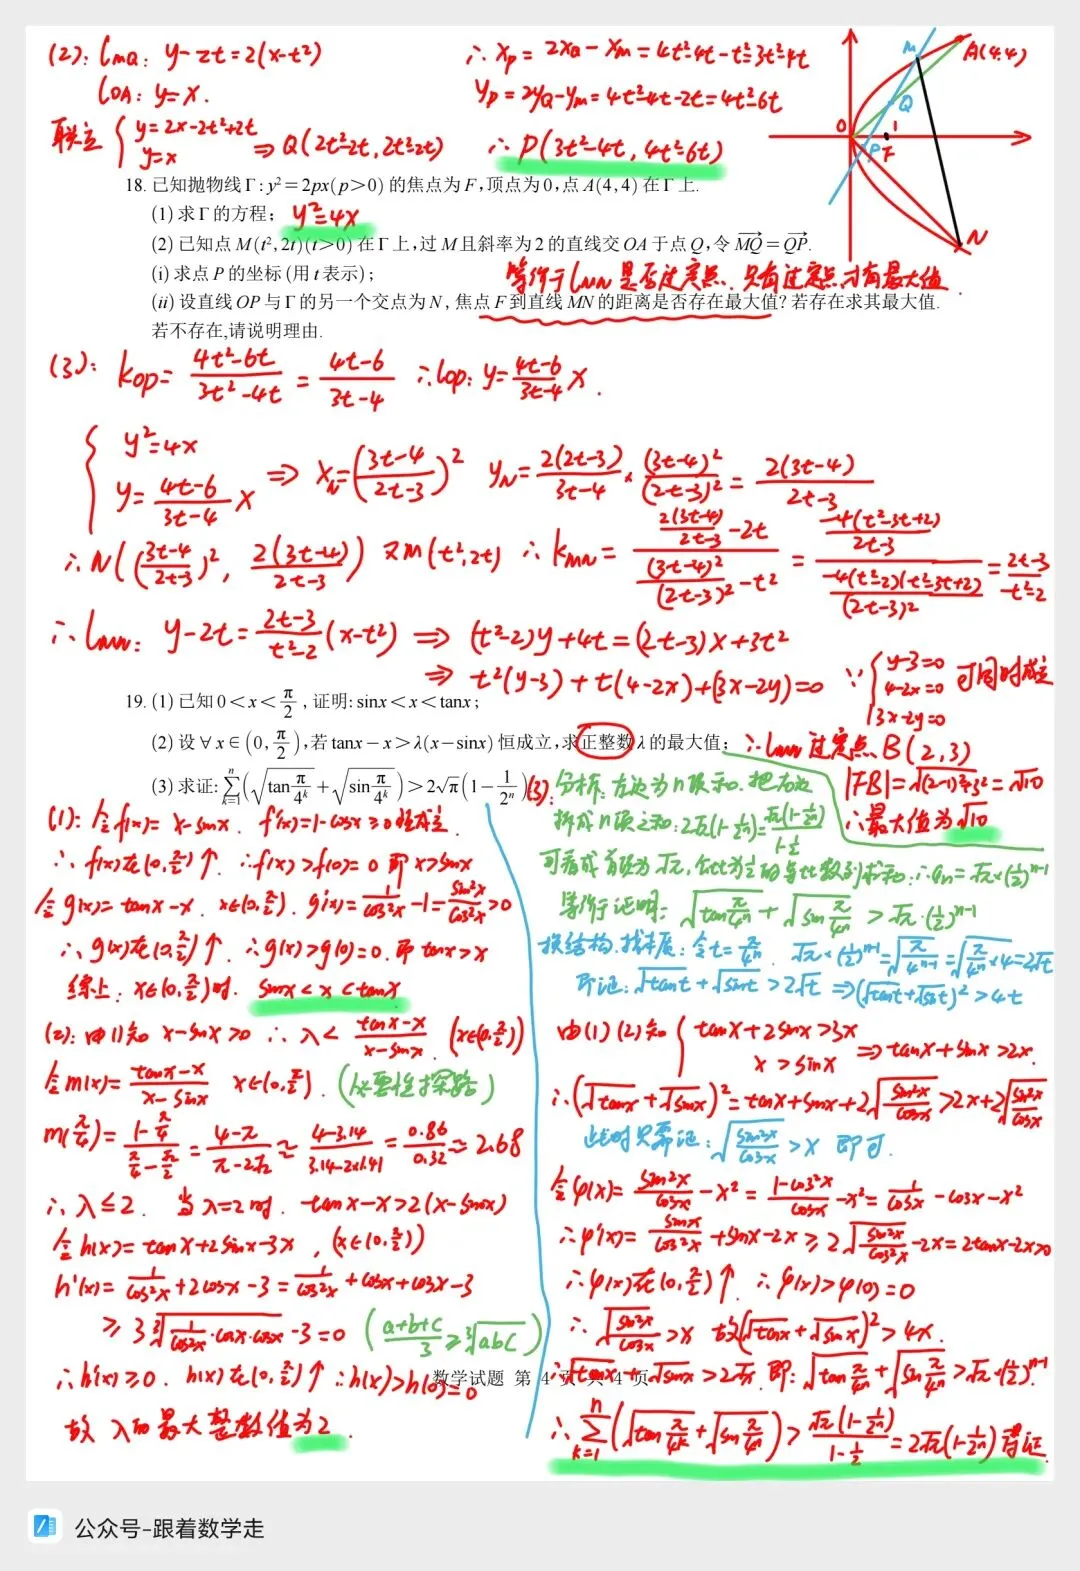 (2): l_{MQ}: y-2t=2(x-t²)
l_{OA}: y=x.
联立 { y=2x-2t²+2t
y=x ⇒ Q(2t²-2t, 2t²-2t)
∴ x_P = 2x_Q-x_M = 4t²-4t-t²=3t²-4t
y_P = 2y_Q-y_M=4t²-4t-2t=4t²-6t
∴ P(3t²-4t, 4t²-6t)
M
A(4,4)
Q
O
1
P
F
N
18. 已知抛物线Γ:y²=2px(p>0)的焦点为F,顶点为0,点A(4,4)在Γ上.
(1)求Γ的方程; y²=4x
(2)已知点M(t²,2t)(t>0)在Γ上,过M且斜率为2的直线交OA于点Q,令MQ=QP.
(i)求点P的坐标(用t表示);
等价于l_{MN}是否过定点. 只有过定点才有最大值
(ii)设直线OP与Γ的另一个交点为N,焦点F到直线MN的距离是否存在最大值?若存在求其最大值.
若不存在,请说明理由.
(3): k_{OP}= (4t²-6t)/(3t²-4t) = (4t-6)/(3t-4) ∴l_{OP}: y=(4t-6)/(3t-4) x.
{ y²=4x
y=(4t-6)/(3t-4) x ⇒ x_N=((3t-4)/(2t-3))² y_N=2(2t-3)/(3t-4) × (3t-4)²/(2t-3)² = 2(3t-4)/(2t-3)
∴ N(((3t-4)/(2t-3))², 2(3t-4)/(2t-3)) 又M(t²,2t) ∴ k_{MN} = (2(3t-4)/(2t-3) -2t)/((3t-4)²/(2t-3)² -t²) = (-4(t²-3t+2)/(2t-3))/(-4(t²-2)(t²-3t+2)/(2t-3)²) = (2t-3)/(t²-2)
∴ l_{MN}: y-2t=(2t-3)/(t²-2) (x-t²) ⇒ (t²-2)y+4t=(2t-3)x+3t²
⇒ t²(y-3)+t(4-2x)+(3x-2y)=0 ∵ { y-3=0
4-2x=0 可同时成立
3x-2y=0
∴ l_{MN}过定点B(2,3)
|FB|=√((2-1)²+3²)=√10
∴最大值为√10
19. (1)已知0<x<π/2,证明:sinx<x<tanx;
(2)设∀x∈(0,π/2),若tanx-x>λ(x-sinx)恒成立,求正整数λ的最大值;
(3)求证:∑_{k=1}^{n}(√(tan π/4^k)+√(sin π/4^k))>2√π(1-1/2^n).
(1): 令f(x)= x-sinx. f'(x)=1-cosx≥0恒成立.
∴ f(x)在(0,π/2)↑. ∴f(x)>f(0)=0 即x>sinx
令g(x)= tanx-x. x∈(0,π/2). g'(x)=1/cos²x-1=sin²x/cos²x>0
∴ g(x)在(0,π/2)↑. ∴g(x)>g(0)=0. 即tanx>x
综上: x∈(0,π/2)时. sinx<x<tanx
(2): 由(1)知 x-sinx>0 ∴ λ< (tanx-x)/(x-sinx) (x∈(0,π/2))
令m(x)= (tanx-x)/(x-sinx) x∈(0,π/2). (必要性探路)
m(π/4)= (1-π/4)/(π/4-√2/2) = (4-π)/(π-2√2) ≈ (4-3.14)/(3.14-2×1.41) = 0.86/0.32 ≈ 2.68
∴ λ≤2. 当λ=2时. tanx-x>2(x-sinx)
令h(x)= tanx+2sinx-3x , (x∈(0,π/2))
h'(x)= 1/cos²x+2cosx-3 = 1/cos²x+cosx+cosx-3
≥ 3 ∛(1/cos²x·cosx·cosx) -3=0 ((a+b+c)/3≥∛(abc))
∴h'(x)≥0. h(x)在(0,π/2)↑ ∴h(x)>h(0)=0
故 λ的最大整数值为2.
(3): 分析: 左边为n项和. 把右边
拆成n项之和: 2√π(1-1/2^n)=√π(1-1/2^n)/(1-1/2)
可看成首项为√π, 公比为1/2的等比数列求和: ∴a_n=√π×(1/2)^{n-1}
等价证明: √(tan π/4^n)+√(sin π/4^n) > √π·(1/2)^{n-1}
换结构. 找本质: 令t=π/4^n. √π×(1/2)^{n-1}=√(π/4^{n-1})=√(π/4^n ×4)=2√t
即证: √tant+√sint>2√t ⇒(√tant+√sint)²>4t
由(1)(2)知 { tanx+2sinx>3x
x>sinx ⇒tanx+sinx>2x.
∴(√tanx+√sinx)²=tanx+sinx+2√(sin²x/cosx)>2x+2√(sin²x/cosx)
此时只需证: √(sin²x/cosx)>x 即可.
令φ(x)= sin²x/cosx-x²=(1-cos²x)/cosx-x²=1/cosx-cosx-x²
∴φ'(x)= sinx/cos²x+sinx-2x≥2√(sin²x/cos²x)-2x=2tanx-2x>0
∴φ(x)在(0,π/2)↑. ∴φ(x)>φ(0)=0
∴ √(sin²x/cosx)>x 故(√tanx+√sinx)²>4x.
∴√tanx+√sinx>2√x. 即: √(tan π/4^n)+√(sin π/4^n)>√π×(1/2)^{n-1}.
∴ ∑_{k=1}^{n}(√(tan π/4^k)+√(sin π/4^n))>√π(1-1/2^n)/(1-1/2)=2√π(1-1/2^n)得证.
数学试题 第 4 页 共 4 页
公众号-跟着数学走